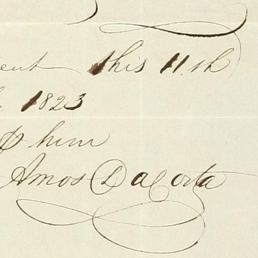 this 11th
1823
him
Amos DaCosta